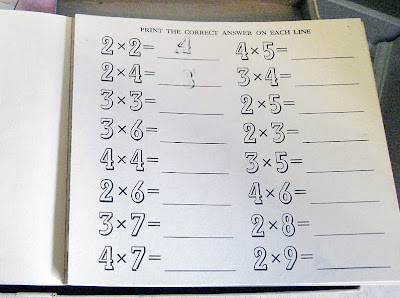 PRINT THE CORRECT ANSWER ON EACH LINE
2×2= 4
2×4=
3×3=
3×6=
4×4=
2×6=
3×7=
4×7=
4×5=
3×4=
2×5=
2×3=
3×5=
4×6=
2×8=
2×9=